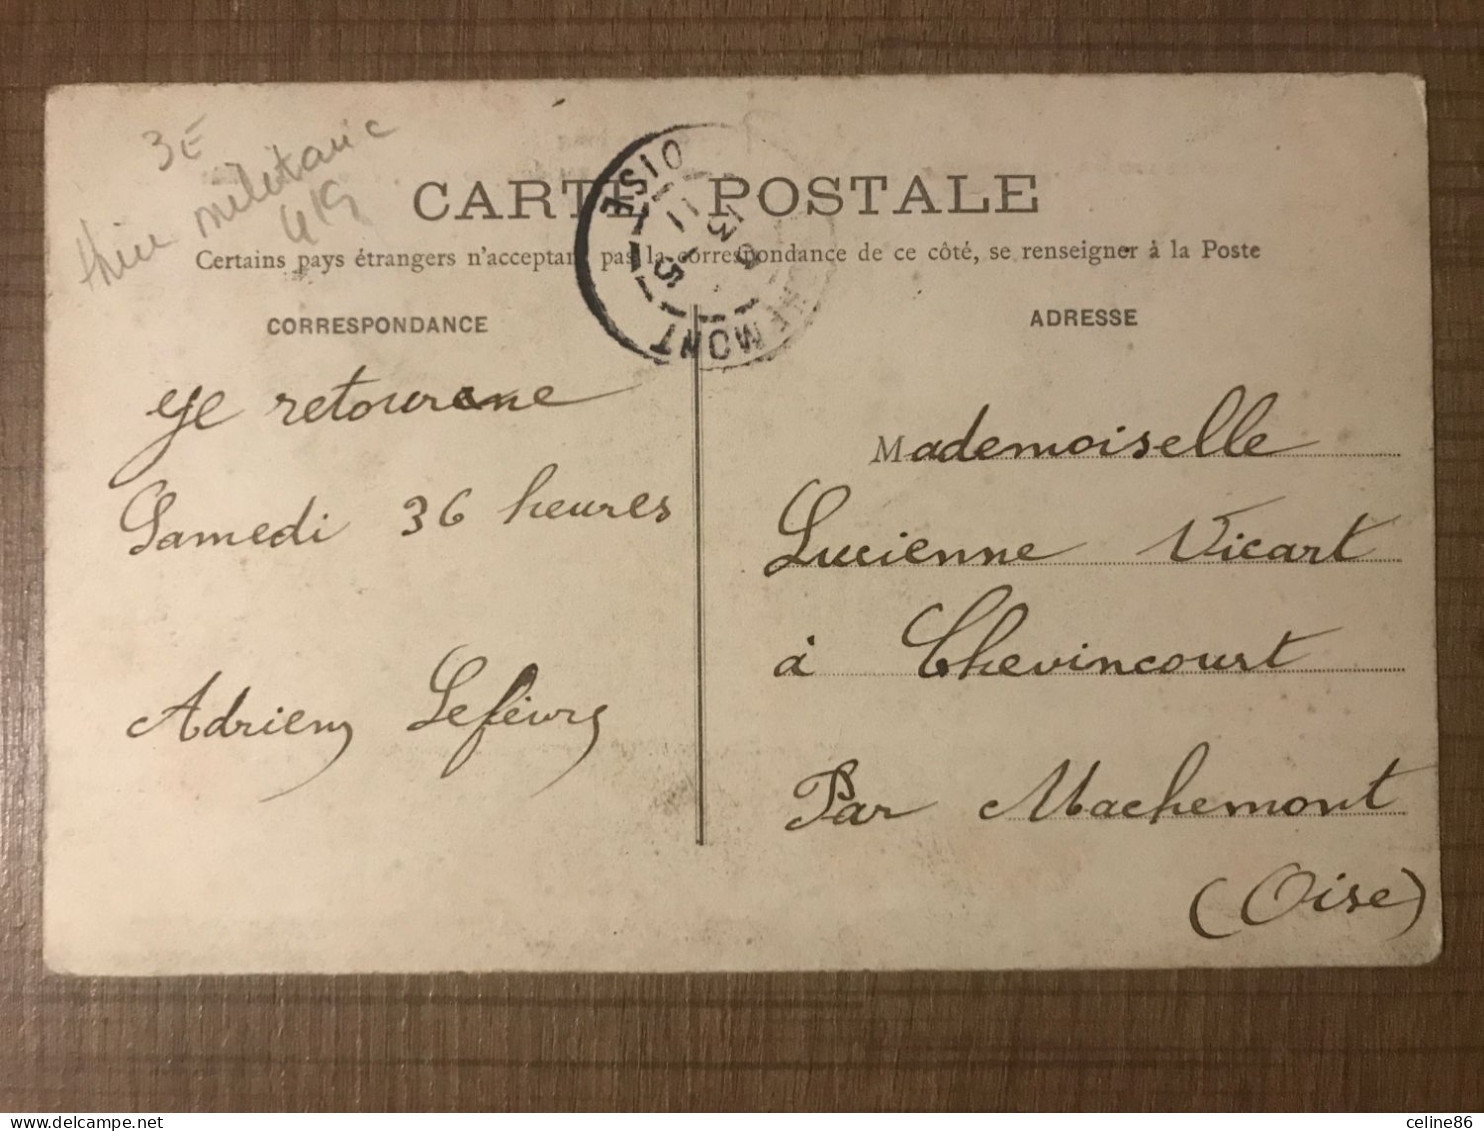 3E
militaria
419
CARTE POSTALE
Certains pays étrangers n'acceptant pas la correspondance de ce côté, se renseigner à la Poste
OISE
13
11
05
MACHEMONT
CORRESPONDANCE
ADRESSE
Je retourne
Samedi 36 heures
Adrien Lefèvre
Mademoiselle
Lucienne Vicart
à Chevincourt
Par Machemont
(Oise)
celine86